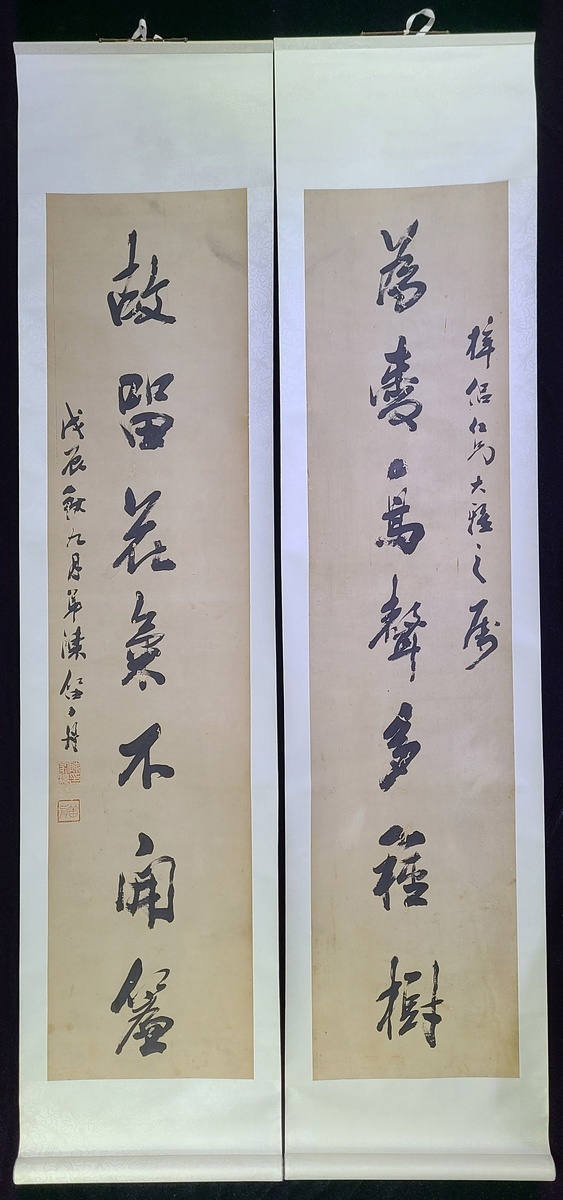 梓侶仁兄大雅之属
為愛鳥聲多種樹
故留花氣不開簾
戊辰秋九月弟陳